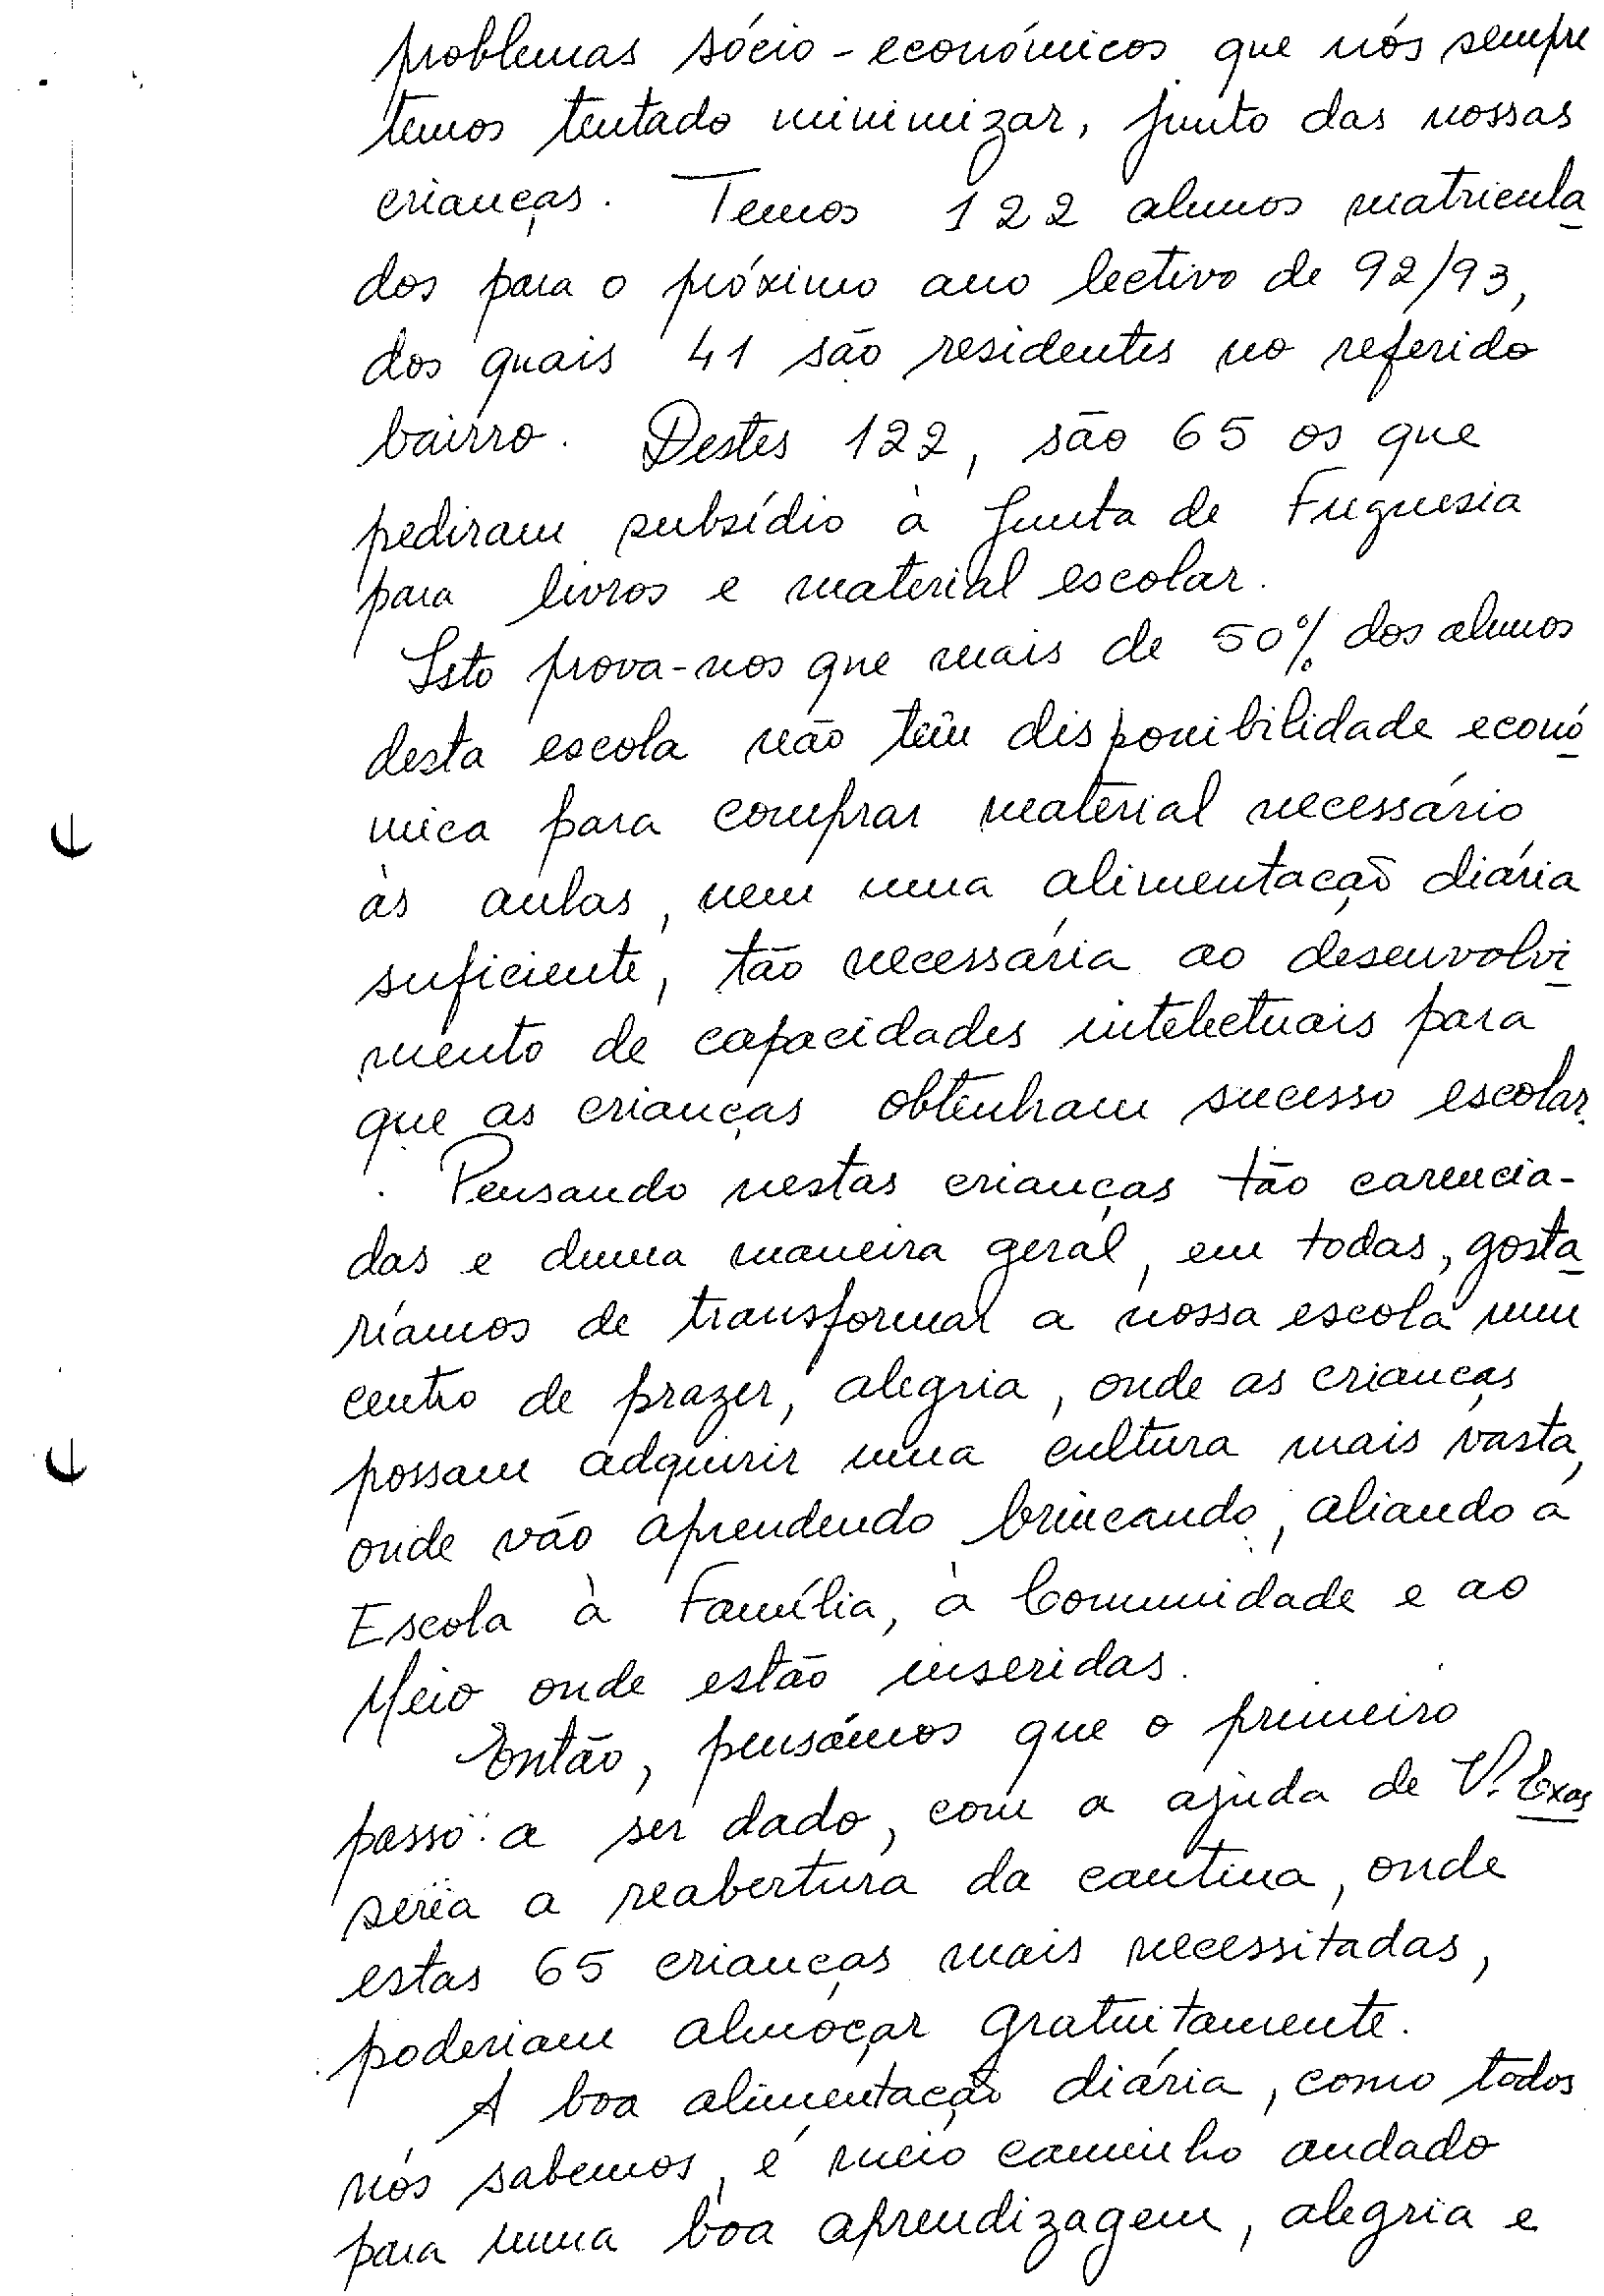 problemas sócio-económicos que nós sempre
temos tentado minimizar, junto das nossas
crianças. Temos 122 alunos matricula
dos para o próximo ano lectivo de 92/93,
dos quais 41 são residentes no referido
bairro. Destes 122, são 65 os que
pediram subsídio à Junta de Freguesia
para livros e material escolar.
Isto prova-nos que mais de 50% dos alunos
desta escola não têm disponibilidade econó
mica para comprar material necessário
às aulas, nem uma alimentação diária
suficiente, tão necessária ao desenvolvi
mento de capacidades intelectuais para
que as crianças obtenham sucesso escolar.
Pensando nestas crianças tão carencia-
das e duma maneira geral, em todas, gosta
ríamos de transformar a nossa escola num
centro de prazer, alegria, onde as crianças
possam adquirir uma cultura mais vasta,
onde vão aprendendo brincando, aliando a
Escola à Família, à Comunidade e ao
Meio onde estão inseridas.
Então, pensámos que o primeiro
passo a ser dado, com a ajuda de V. Exas
seria a reabertura da cantina, onde
estas 65 crianças mais necessitadas,
poderiam almoçar gratuitamente.
A boa alimentação diária, como todos
nós sabemos, é meio caminho andado
para uma boa aprendizagem, alegria e